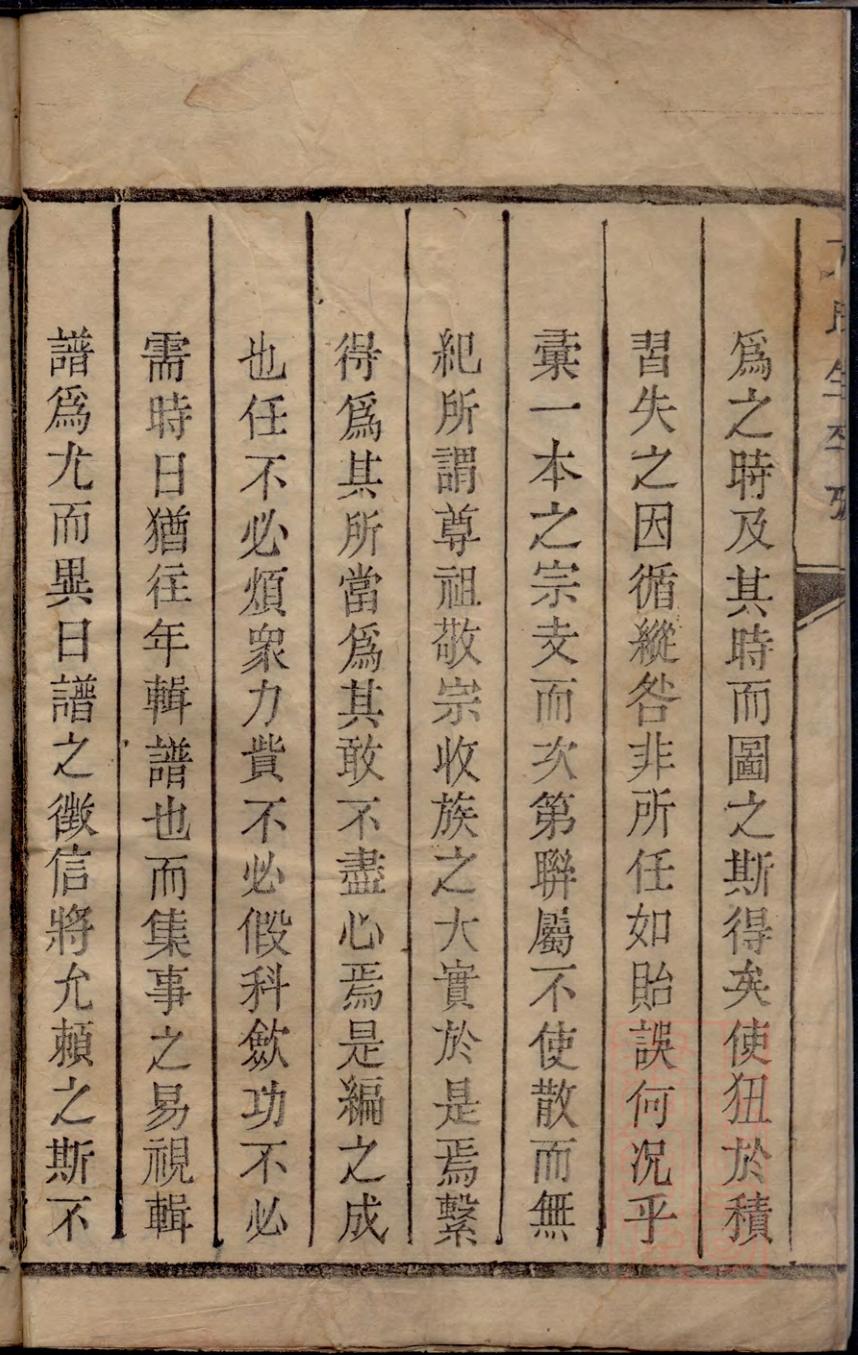 爲之時及其時而圖之斯得矣使狃於積
習失之因循縱咎非所任如貽誤何况乎
彚一本之宗支而次第聯屬不使散而無
紀所謂尊祖敬宗收族之大實於是焉繫
得爲其所當爲其敢不盡心焉是編之成
也任不必煩衆力費不必假科斂功不必
需時日猶往年輯譜也而集事之易視輯
譜爲尤而異日譜之徵信將允賴之斯不